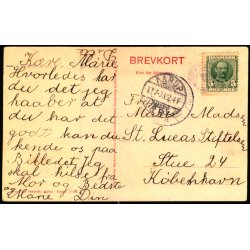 Kær Marie
Hvorledes har
du det jeg
haaber at
du har det
godt kan du
kende os paa
Billedet, jeg
skal hilse fra
Mor og Bedste
Marie Din
BREVKORT
DANMARK
5
Frk
Marie Mads
St. Lucas Stiftels
Stue 24
København